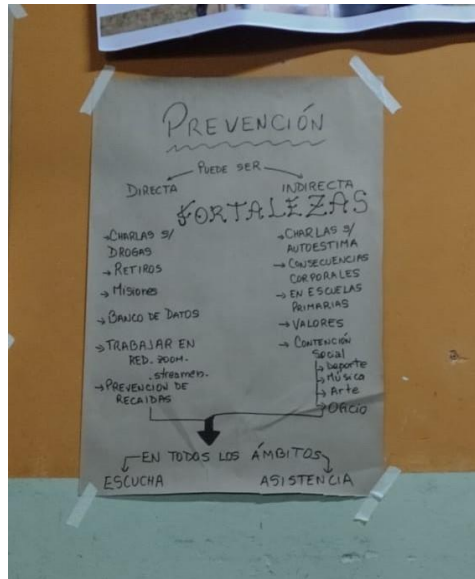 PREVENCIÓN
PUEDE SER
DIRECTA
INDIRECTA
FORTALEZAS
→CHARLAS S/
DROGAS
→RETIROS
→MISIONES
→BANCO DE DATOS
→TRABAJAR EN
RED. ZOOM.
.streamen.
→PREVENCION DE
RECAIDAS
→CHARLAS S/
AUTOESTIMA
→CONSECUENCIAS
CORPORALES
→EN ESCUELAS
PRIMARIAS
→VALORES
→CONTENCIÓN
Social
→Deporte
→Música
→Arte
→Oficio
EN TODOS LOS ÁMBITOS
ESCUCHA
ASISTENCIA